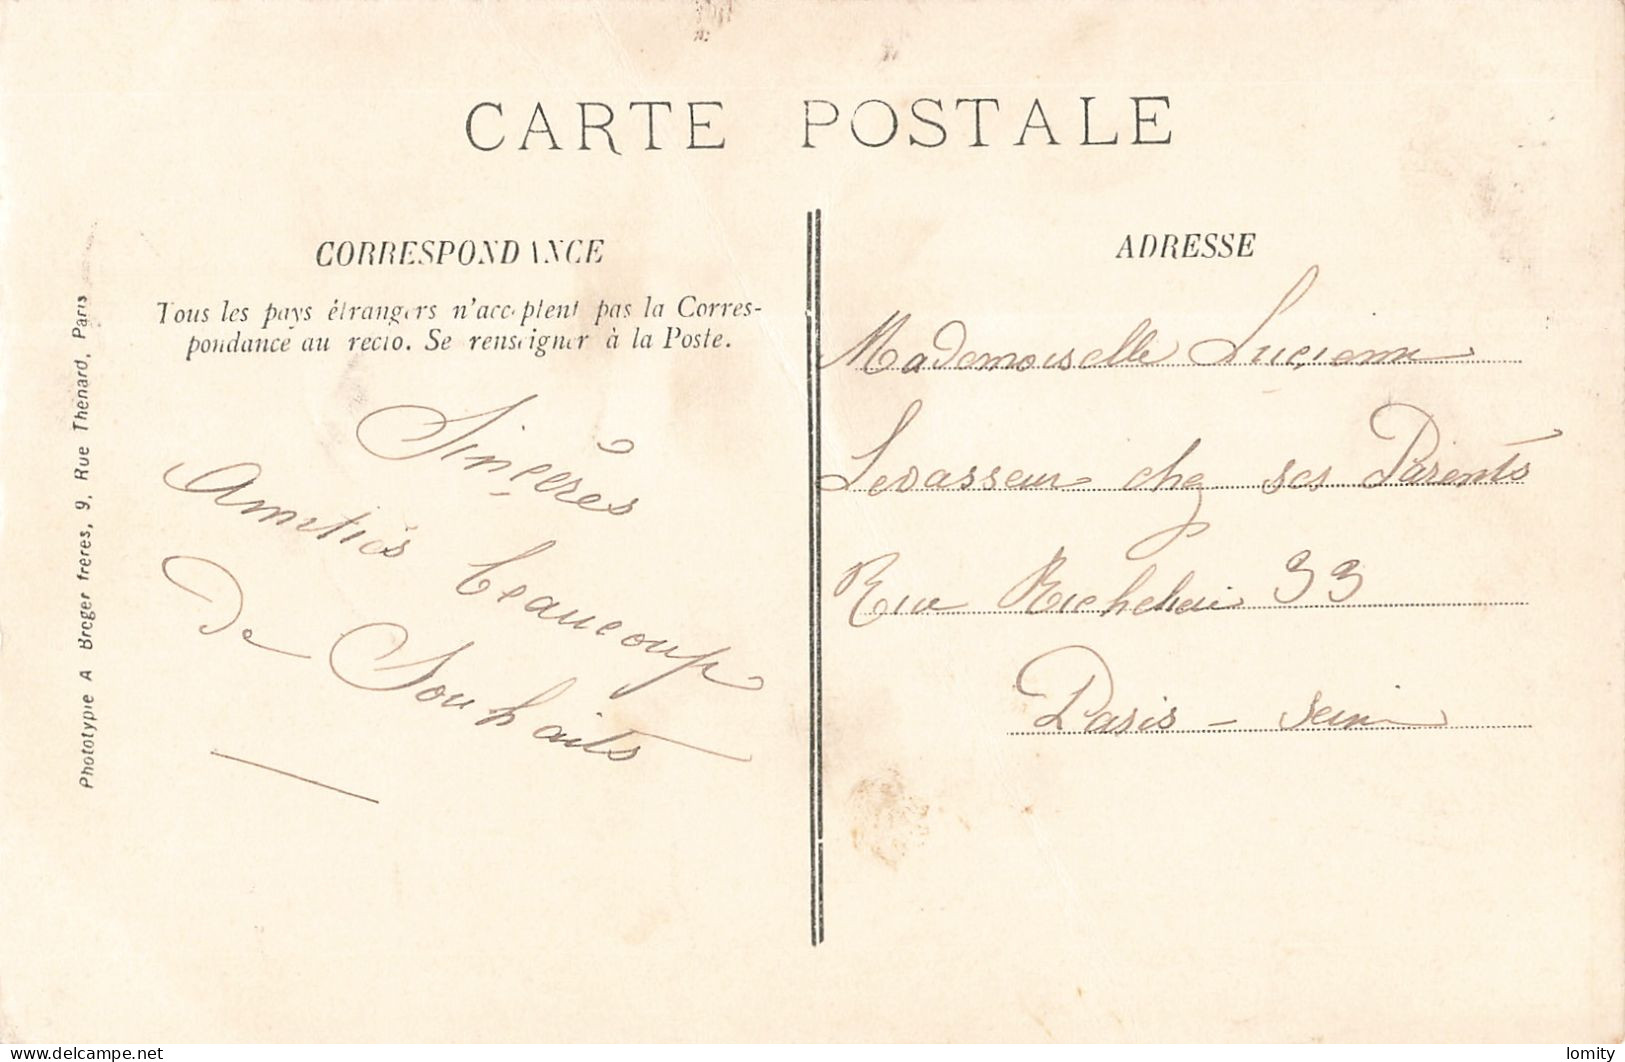 CARTE POSTALE
CORRESPONDANCE
Tous les pays étrangers n'acceptent pas la Corres-
pondance au recto. Se renseigner à la Poste.
Sinçères
Amitiés beaucoup
De Souhaits
ADRESSE
Mademoiselle Lucienne
Levasseur chez ses Parents
Rue Richelieu 33
Paris - Seine
Phototypie A Breger freres, 9, Rue Thenard, Paris
delcampe.net
lomity